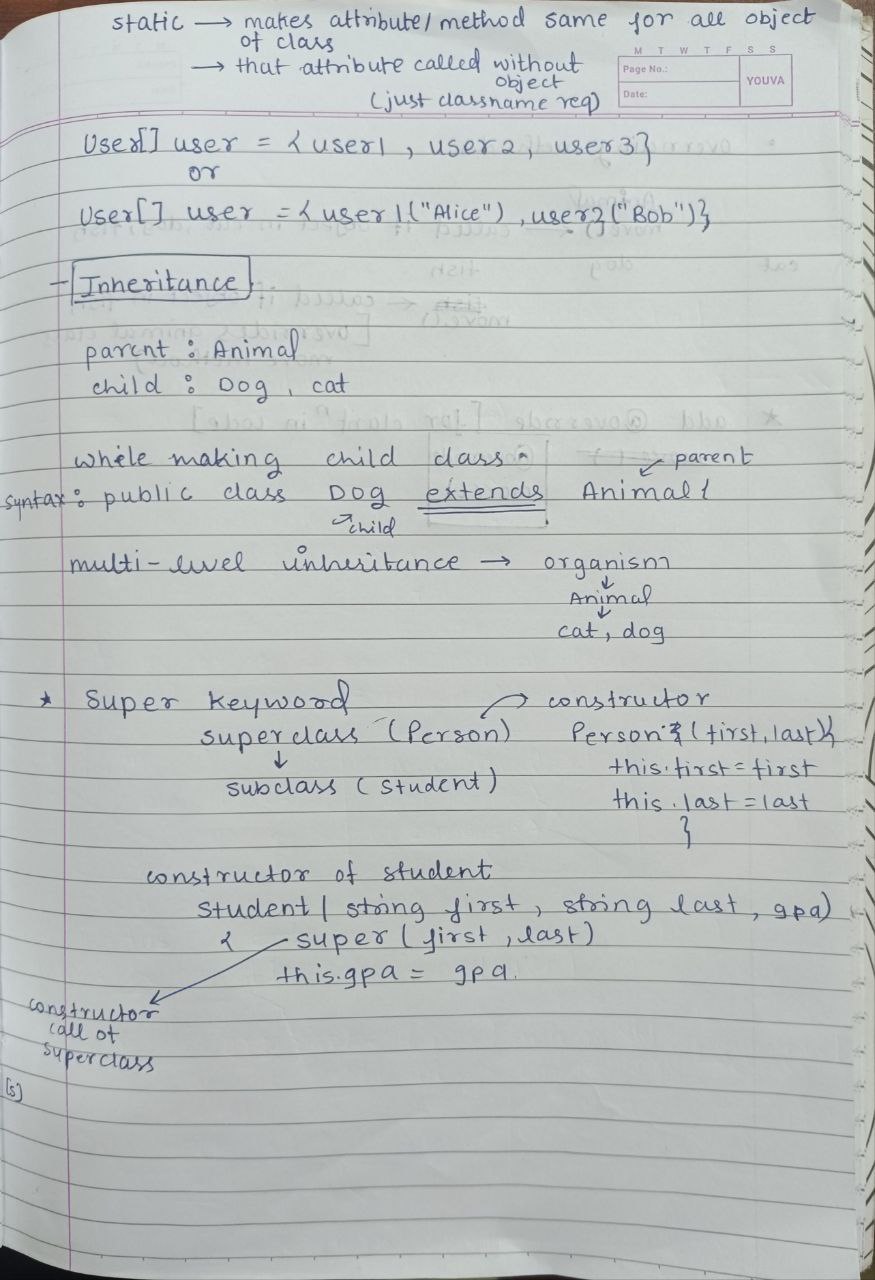 static → makes attribute/method same for all object
of class
→ that attribute called without
object
(just classname req)
M T W T F S S
Page No.:
Date:
YOUVA
User[] user = { user1 , user2, user3}
or
User[] user = { user1("Alice") , user2("Bob")}
- Inheritance
parent : Animal
child : Dog , cat
while making child class -
parent
syntax : public class Dog extends Animal {
child
multi-level inheritance → organism
↓
Animal
↓
cat, dog
* Super Keyword
superclass (Person)
↓
subclass (student)
constructor
Person (first, last){
this.first = first
this.last = last
}
constructor of student
student ( string first, string last, gpa)
{ super (first, last)
this.gpa = gpa.
constructor
call of
superclass
[s]